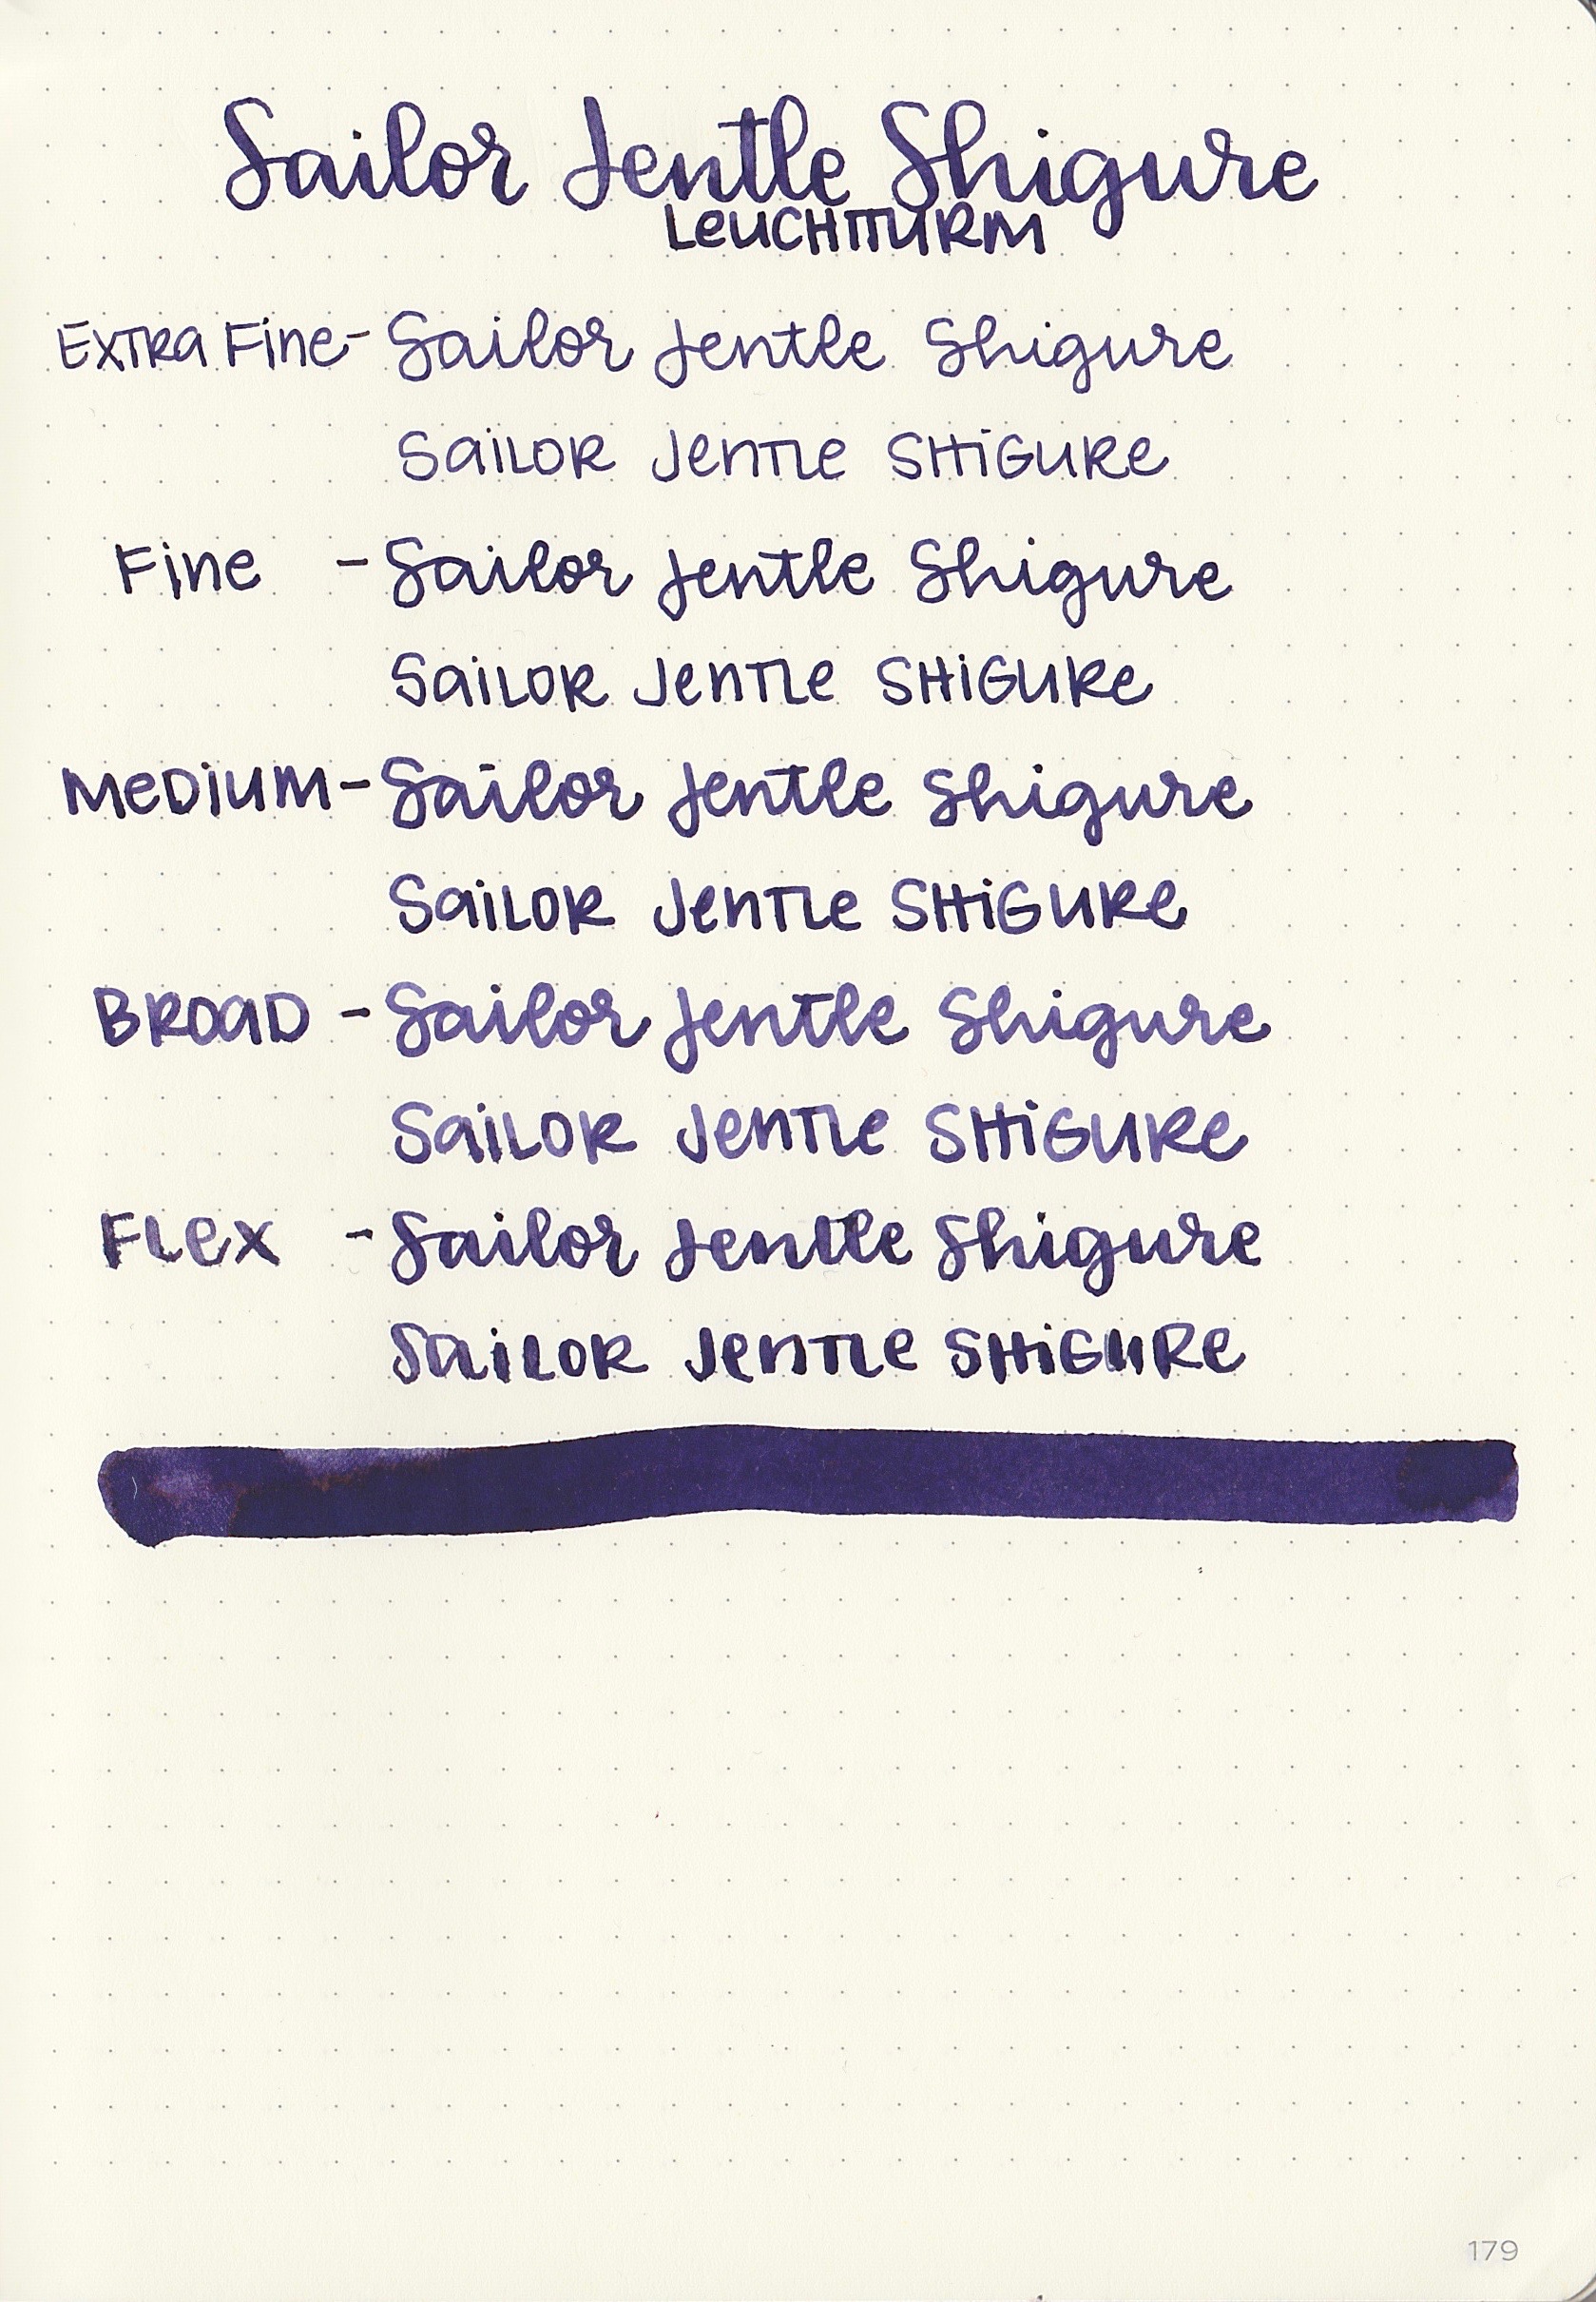 Sailor Jentle Shigure
LeUCHTTURM
EXTRa Fine- Sailor Jentle Shigure
SaiLOR JenTLe SHiGURe
Fine - Sailor Jentle Shigure
SaiLOR JenTLe SHiGURe
MeDiUM- Sailor Jentle Shigure
SaiLOR JenTLe SHiGURe
BROaD - Sailor Jentle Shigure
SaiLOR JenTLe SHiGURe
FLex - Sailor Jentle Shigure
SaiLOR JenTLe SHiGURe
179